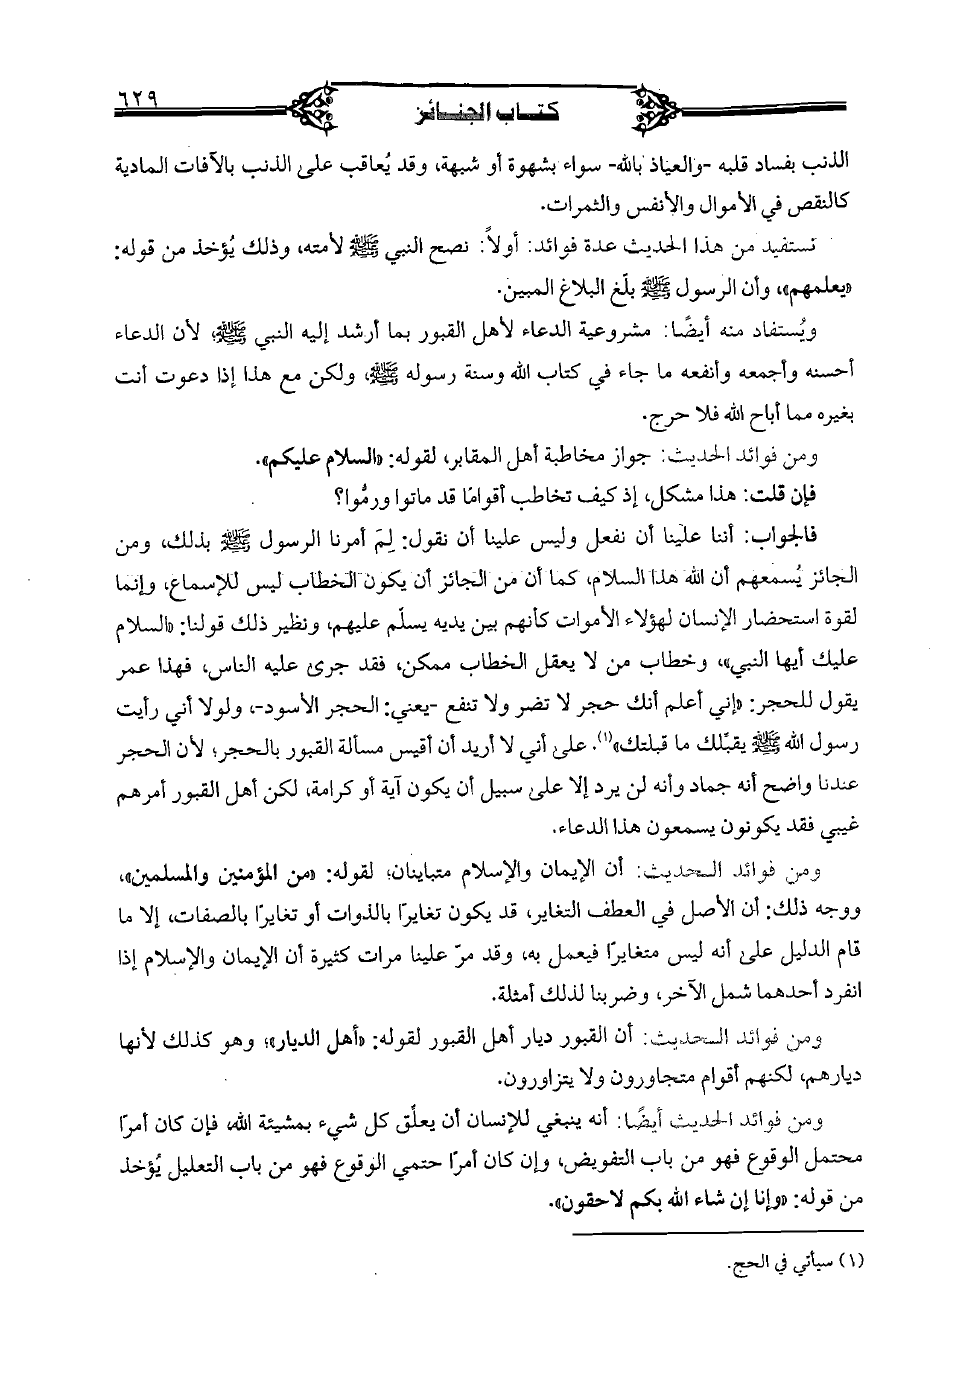 ٦٢٩
كتاب الجنائز
الذنب بفساد قلبه -والعياذ بالله- سواء بشهوة أو شبهة، وقد يُعاقب على الذنب بالآفات المادية
كالنقص في الأموال والأنفس والثمرات.
نستفيد من هذا الحديث عدة فوائد: أولاً: نصح النبي ﷺ لأمته، وذلك يُؤخذ من قوله:
«يعلمهم»، وأن الرسول ﷺ بلّغ البلاغ المبين.
ويُستفاد منه أيضًا: مشروعية الدعاء لأهل القبور بما أرشد إليه النبي ﷺ؛ لأن الدعاء
أحسنه وأجمعه وأنفعه ما جاء في كتاب الله وسنة رسوله ﷺ، ولكن مع هذا إذا دعوت أنت
بغيره مما أباح الله فلا حرج.
ومن فوائد الحديث: جواز مخاطبة أهل المقابر، لقوله: «السلام عليكم».
فإن قلت: هذا مشكل، إذ كيف تخاطب أقوامًا قد ماتوا ورمُّوا؟
فالجواب: أننا علينا أن نفعل وليس علينا أن نقول: لِمَ أمرنا الرسول ﷺ بذلك، ومن
الجائز يُسمعهم أن الله هذا السلام، كما أن من الجائز أن يكون الخطاب ليس للإسماع، وإنما
لقوة استحضار الإنسان لهؤلاء الأموات كأنهم بين يديه يسلّم عليهم، ونظير ذلك قولنا: «السلام
عليك أيها النبي»، وخطاب من لا يعقل الخطاب ممكن، فقد جرى عليه الناس، فهذا عمر
يقول للحجر: «إني أعلم أنك حجر لا تضر ولا تنفع -يعني: الحجر الأسود-، ولولا أني رأيت
رسول الله ﷺ يقبّلك ما قبلتك»(١). على أني لا أريد أن أقيس مسألة القبور بالحجر؛ لأن الحجر
عندنا واضح أنه جماد وأنه لن يرد إلا على سبيل أن يكون آية أو كرامة، لكن أهل القبور أمرهم
غيبي فقد يكونون يسمعون هذا الدعاء.
ومن فوائد الحديث: أن الإيمان والإسلام متباينان؛ لقوله: «من المؤمنين والمسلمين»،
ووجه ذلك: أن الأصل في العطف التغاير، قد يكون تغايرًا بالذوات أو تغايرًا بالصفات، إلا ما
قام الدليل على أنه ليس متغايرًا فيعمل به، وقد مرّ علينا مرات كثيرة أن الإيمان والإسلام إذا
انفرد أحدهما شمل الآخر، وضربنا لذلك أمثلة.
ومن فوائد الحديث: أن القبور ديار أهل القبور لقوله: «أهل الديار»؛ وهو كذلك لأنها
ديارهم، لكنهم أقوام متجاورون ولا يتزاورون.
ومن فوائد الحديث أيضًا: أنه ينبغي للإنسان أن يعلّق كل شيء بمشيئة الله، فإن كان أمرًا
محتمل الوقوع فهو من باب التفويض، وإن كان أمرًا حتمي الوقوع فهو من باب التعليل يُؤخذ
من قوله: «وإنا إن شاء الله بكم لاحقون».
(١) سيأتي في الحج.